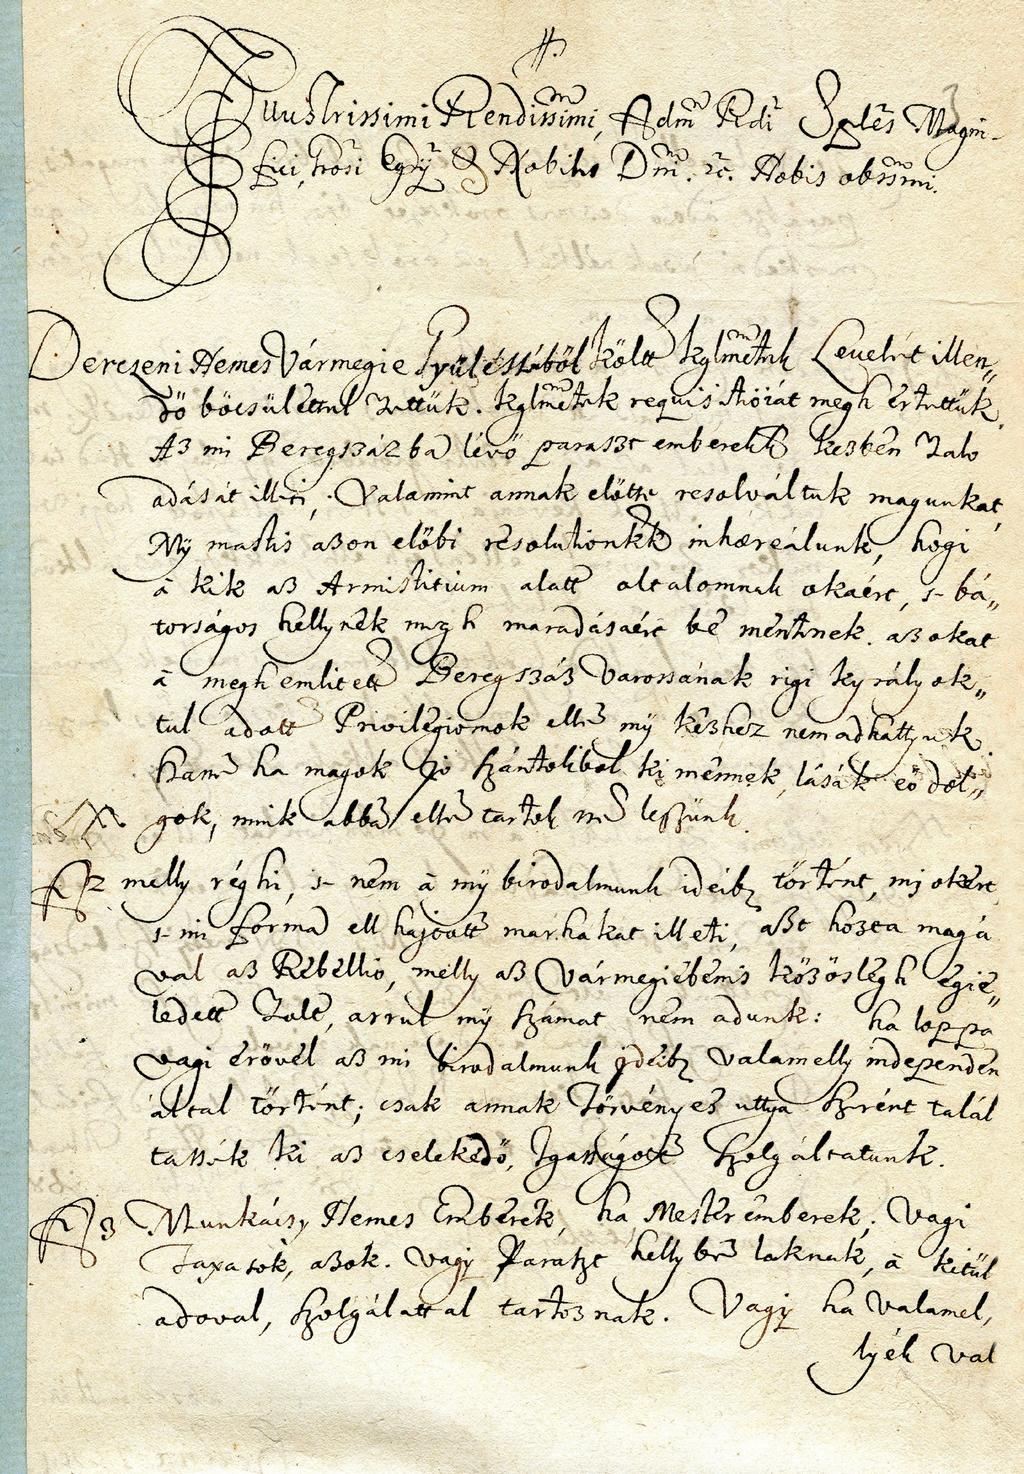 Illustrissimi Rendissimi, Adm Rdi Sples Magni-
fici, Grosi Egry & Nobiles Dni. 2c. Nobis obssmi.
Derczeni Nemes Vármegie Gyüléséböl költ kglmetek Leuelét illen„
dö böcsülettul vettük. kglmetek requisitioiát megh értettük.
Az mi Beregszázba lévö paraszt emberek kezben valo
adását illeti, Valamint annak elötte resolváltuk magunkat,
My mastis azon elöbi resolutionkk inhaereálunk, hogi
à kik az Armistitium alatt oltalomnak okaért, s- bá„
torságos hellynek megh maradásaért bé mentenek. azokat
à megh emlitett Beregszáz Varossának rigi kyrályok„
tul adott Privilegiomok ellen my kézhez nem adhattyuk.
Hanem ha magok jo szántokbol ki mennek, lásák eö dol„
gok, mink abban ellent tartok nem leszünk.
2 melly réghi, s- nem à my birodalmunk ideiben történt, mi okért
s- mi forma ell hajtott marhakat illeti, azt hozta magá
val az Rebellio, melly az Vármegiébenis közöslégh egie„
ledett volt, arrul my számat nem adunk: ha loppa
vagi erövel az mi birodalmunk ideiben valamelly independen
által történt; csak annak Törvényes uttya szerént talál
tassék ki az cselekedö, Igasságott szolgáltatunk.
3 Munkácsy Nemes Emberek, ha Mester emberek, Vagi
Taxasok, azok. vagy Paraszt hellyben laknak, à kitül
adoval, szolgálattal tartoznak. Vagy ha valamel,
lyék val